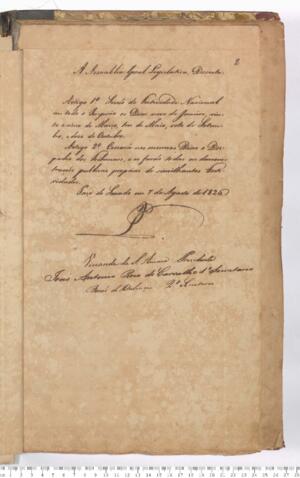 2
A Assemblea Geral Legislativa, Decreta.
Artigo 1º Serão de Festividade Nacional
em todo o Imperio os Dias nove de Janeiro, vin
te e cinco de Março, tres de Maio, sete de Setem
bro, e doze de Outubro.
Artigo 2º Cessarão nos mesmos Dias o Des
pacho dos Tribunaes, e se farão todas as demons
trações publicas proprias de semilhantes Fes
tividades.
Paço do Senado em 7 de Agosto de 1826
Visconde de S. Amaro Presidente
José Antonio Roiz de Carvalho 1º Secretario